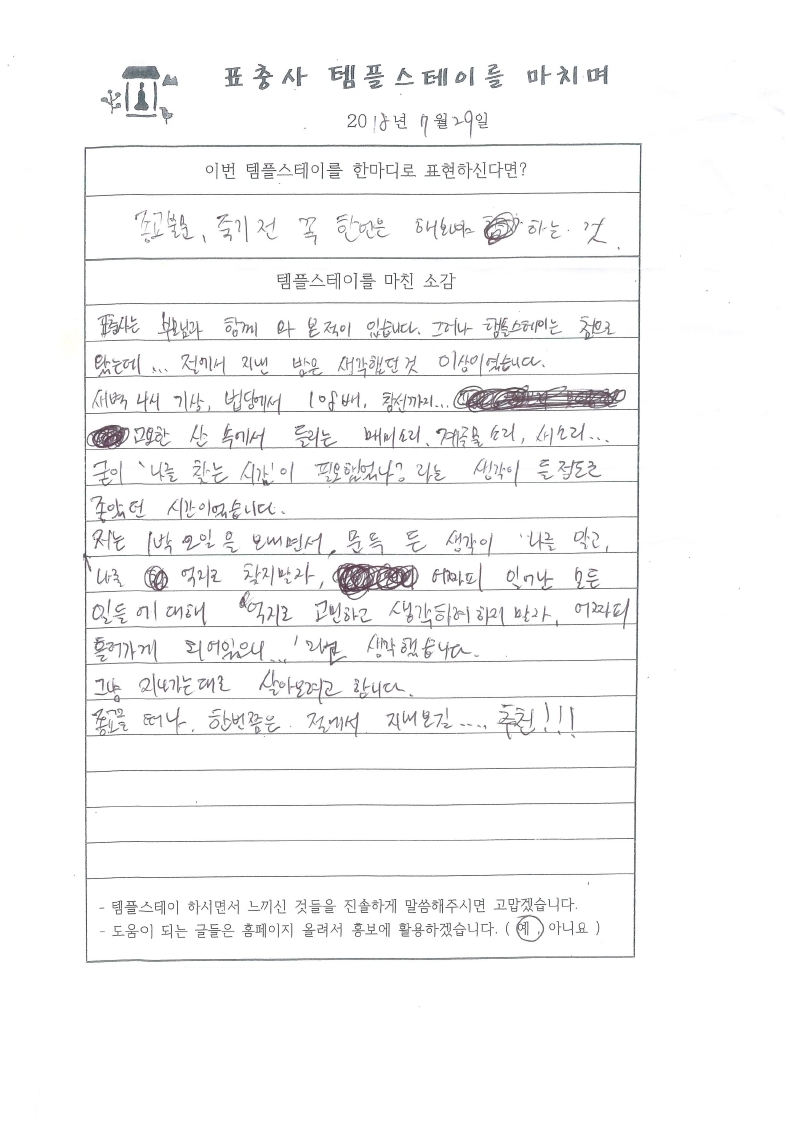 표충사 템플스테이를 마치며
2018년 7월 29일
이번 템플스테이를 한마디로 표현하신다면?
종교불문, 죽기전 꼭 한번은 해봐야 하는 것.
템플스테이를 마친 소감
표충사는 부모님과 함께 와 본적이 있습니다. 그러나 템플스테이는 처음으로
왔는데... 절에서 지낸 밤은 생각했던 것 이상이였습니다.
새벽 4시 기상, 법당에서 108배, 참선까지...
고요한 산 속에서 들리는 매미소리, 계곡물 소리, 새소리...
굳이 '나를 찾는 시간'이 필요했었나? 라는 생각이 들 정도로
좋았던 시간이였습니다.
저는 1박 2일을 보내면서, 문득 든 생각이 '나를 알고,
나를 억지로 찾지말자, 어짜피 일어난 모든
일들에 대해 억지로 고민하고 생각하려 하지 말자, 어짜피
흘러가게 되어있으니...' 라고 생각했습니다.
그냥 지나가는대로 살아보려고 합니다.
종교를 떠나, 한번쯤은 절에서 지내보길.... 추천!!!
- 템플스테이 하시면서 느끼신 것들을 진솔하게 말씀해주시면 고맙겠습니다.
- 도움이 되는 글들은 홈페이지 올려서 홍보에 활용하겠습니다. ( 예 , 아니요 )